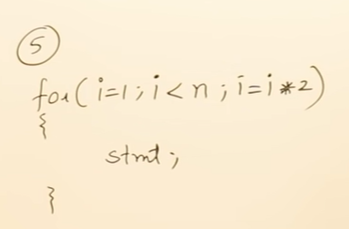 5
for(i=1;i<n;i=i*2)
{
stmt;
}